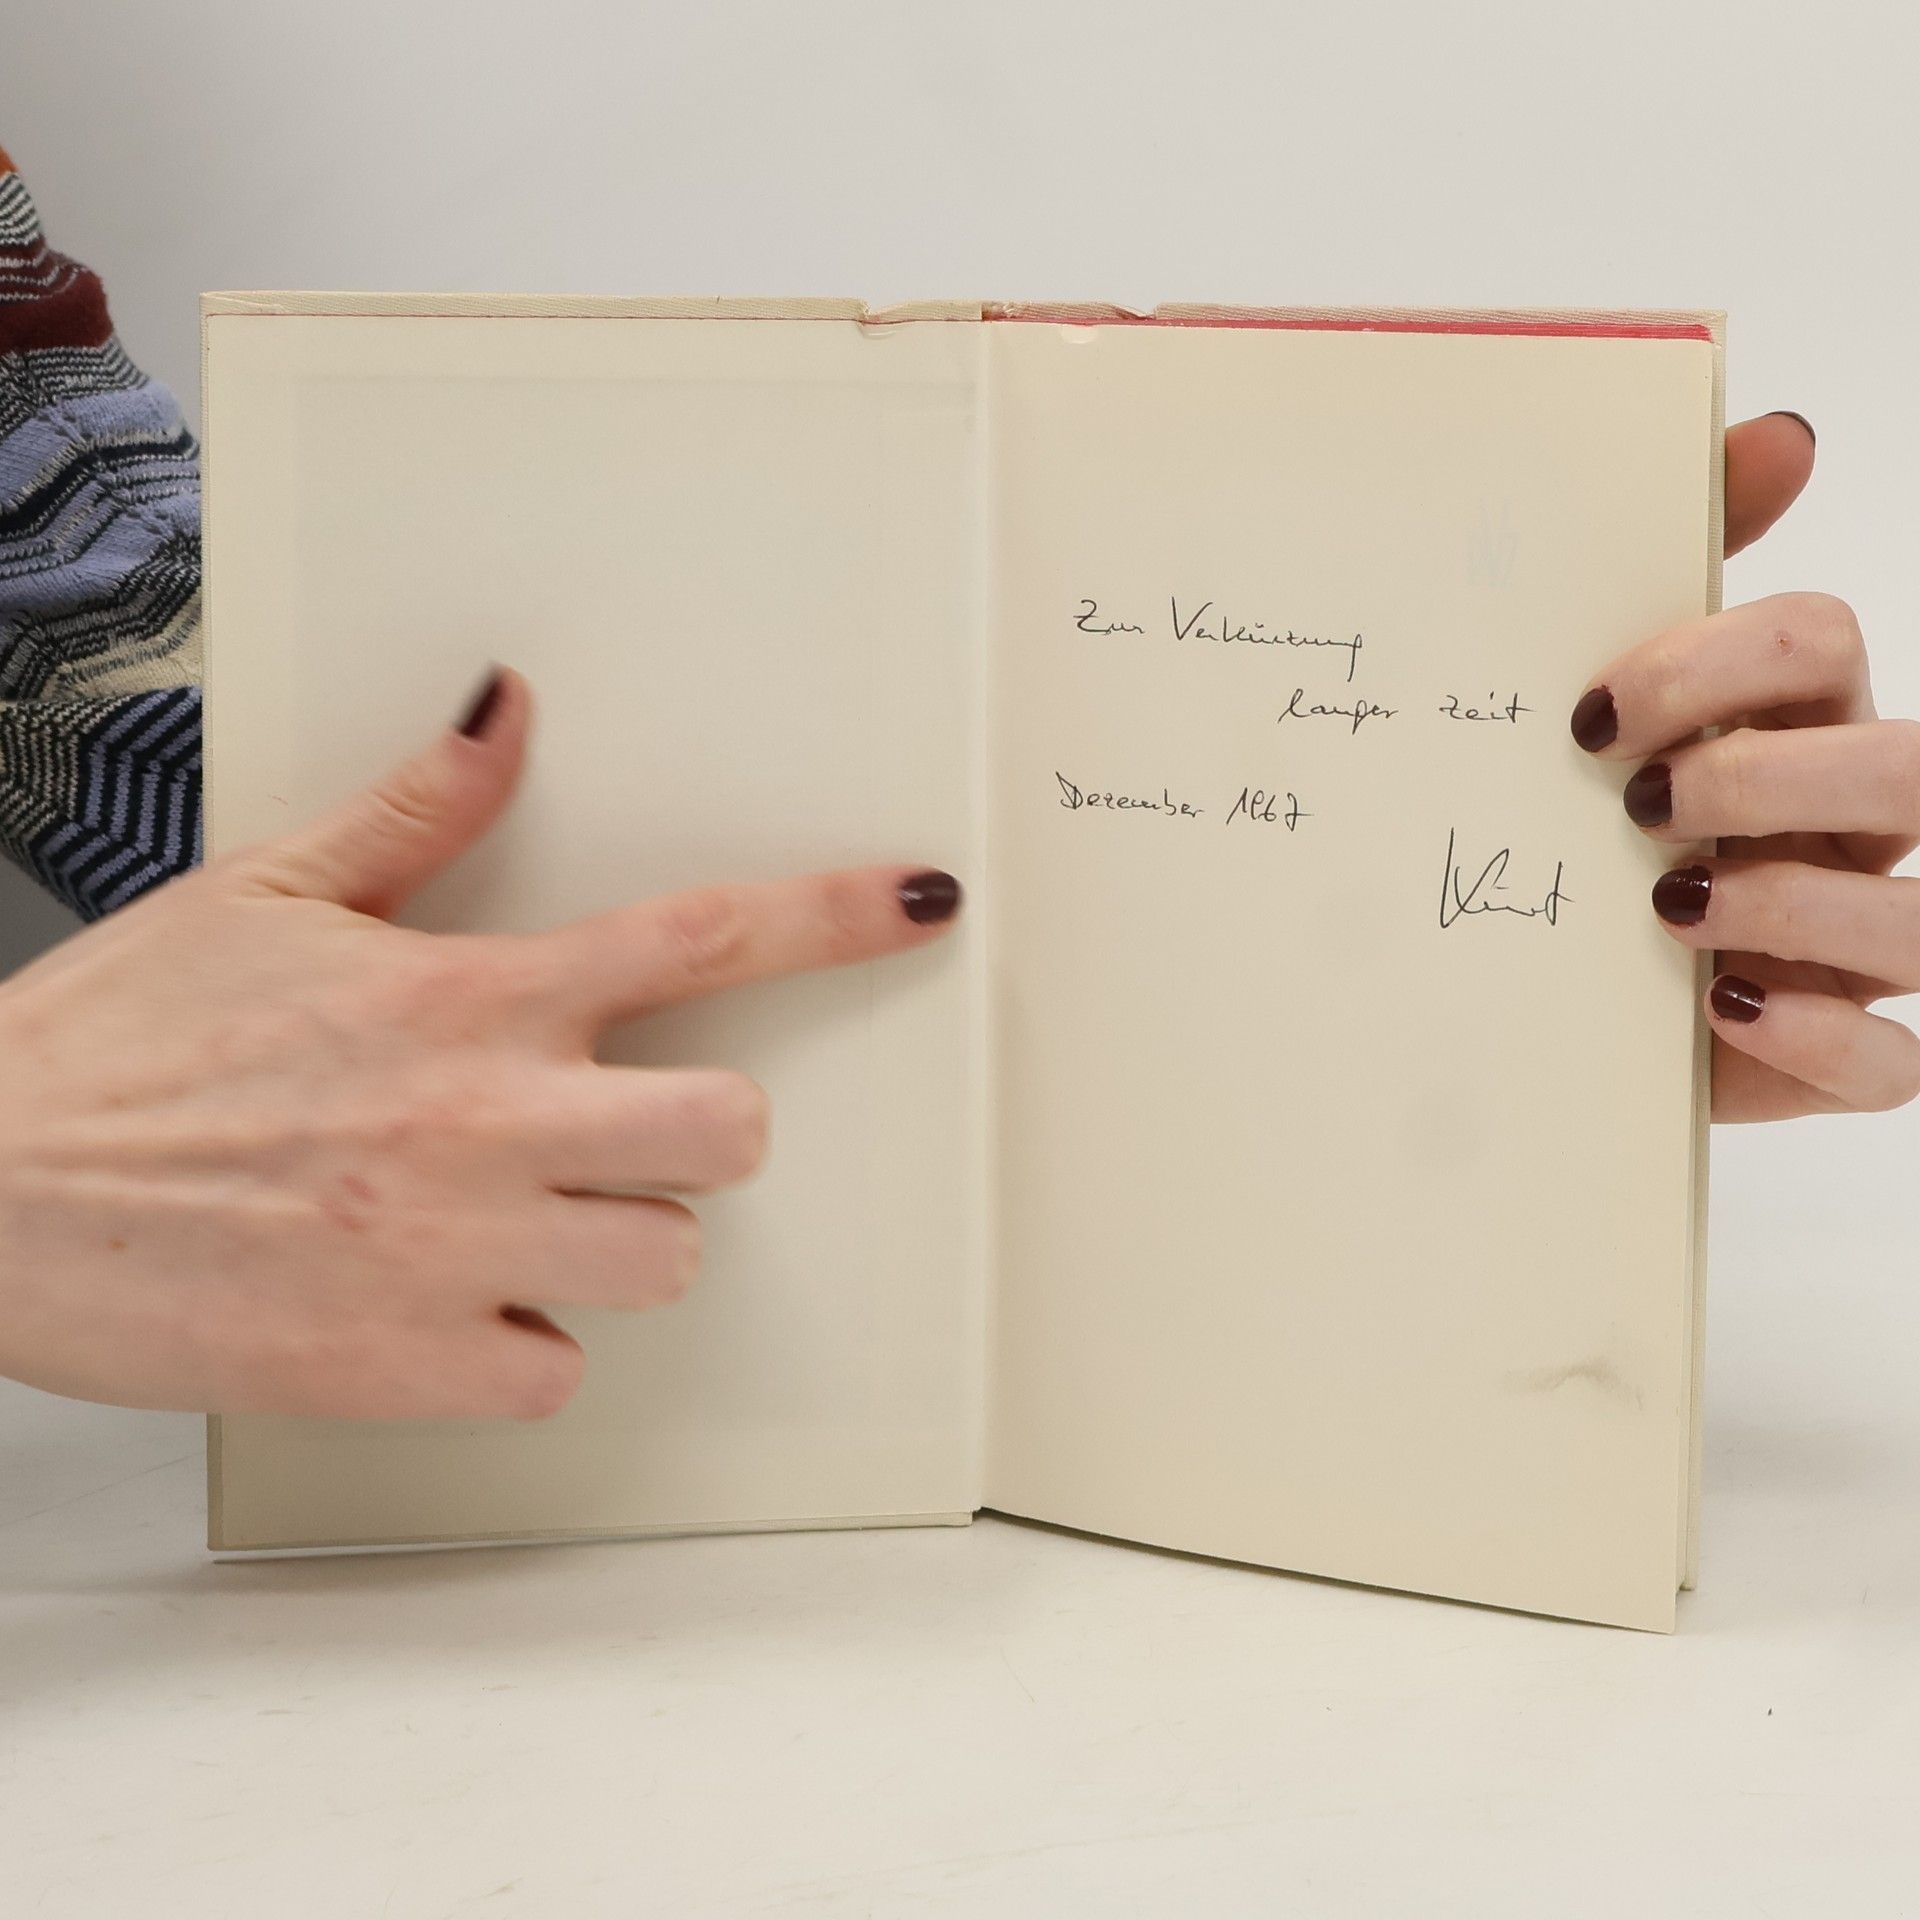 Zur Verkürzung
langer Zeit
Dezember 1967
Kurt